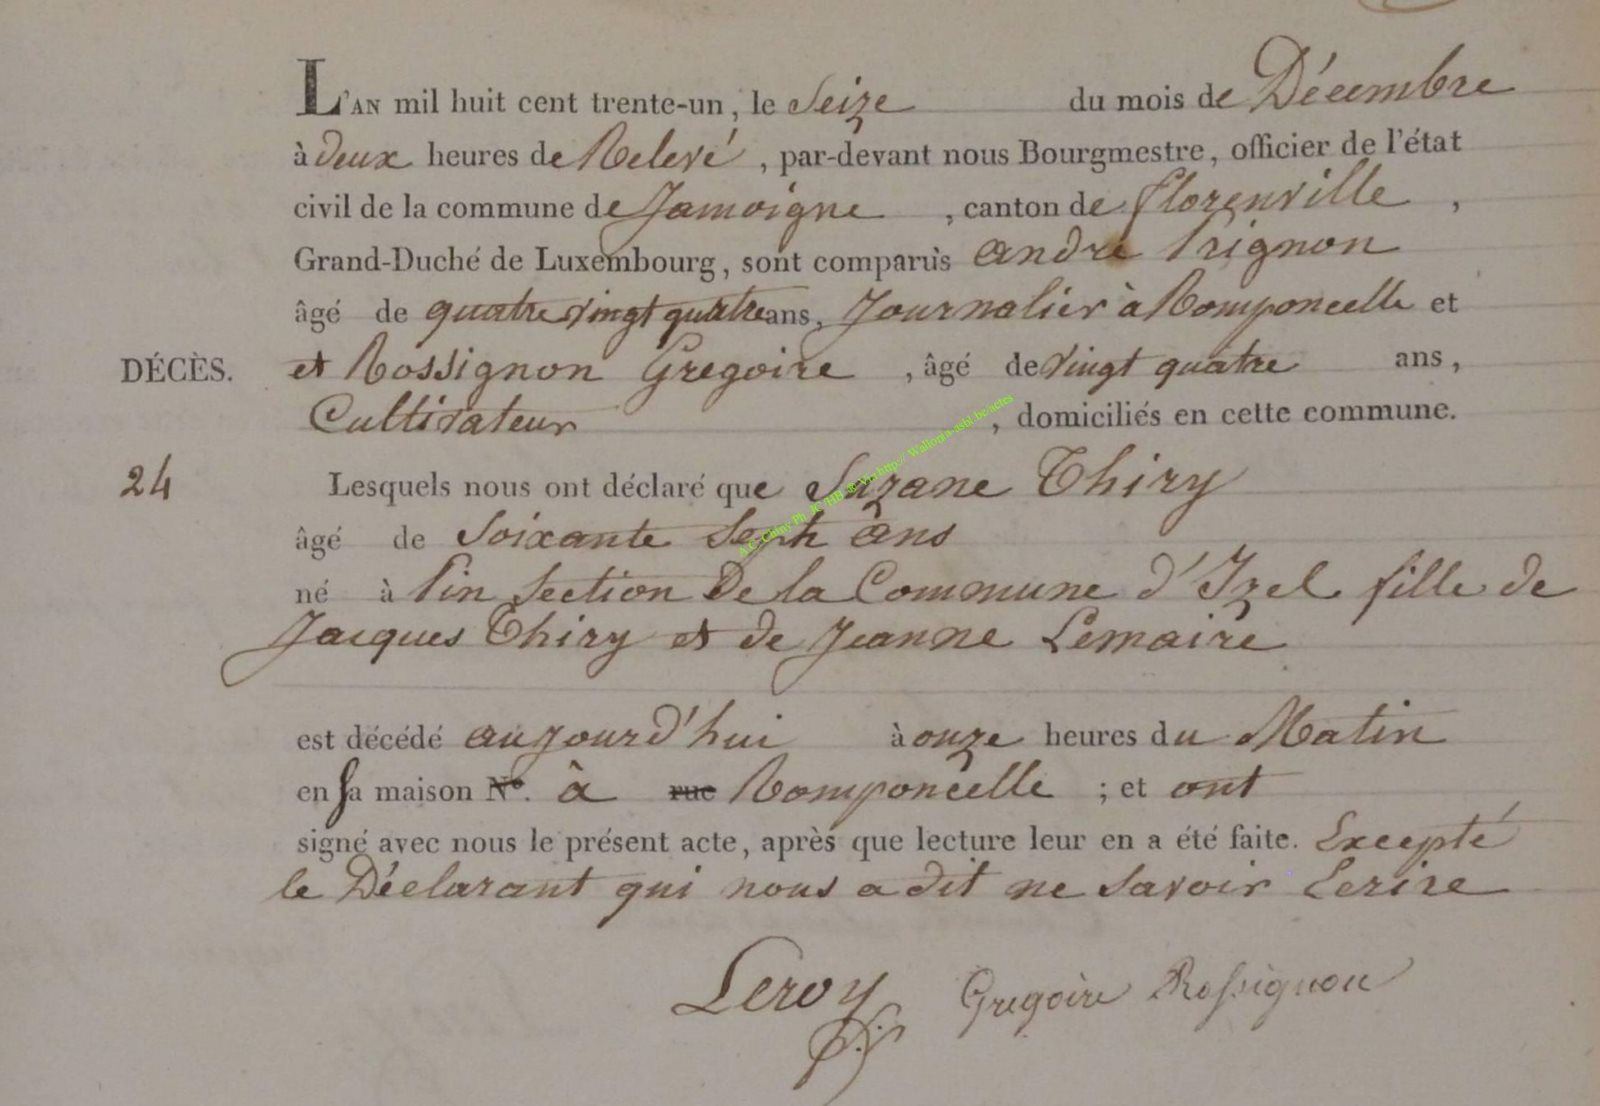 L'AN mil huit cent trente-un, le Seize du mois de Décembre
à deux heures de Relevé, par-devant nous Bourgmestre, officier de l'état
civil de la commune de Jamoigne, canton de florenville,
Grand-Duché de Luxembourg, sont comparus andré Prignon
âgé de quatre vingt quatre ans, Journalier à Romponcelle et
DÉCÈS. et Rossignon Gregoire, âgé de vingt quatre ans,
Cultivateur, domiciliés en cette commune.
24 Lesquels nous ont déclaré que Suzane Thiry
âgé de Soixante Sept ans
né à Pin Section De la Commune d'Izel fille de
Jacques Thiry et de Jeanne Lemaire
est décédé aujourd'hui à onze heures du Matin
en sa maison N°. à rue Romponcelle; et ont
signé avec nous le présent acte, après que lecture leur en a été faite. Excepté
le Déclarant qui nous a dit ne Savoir Ecrire
Leroy Gregoire Rossignon